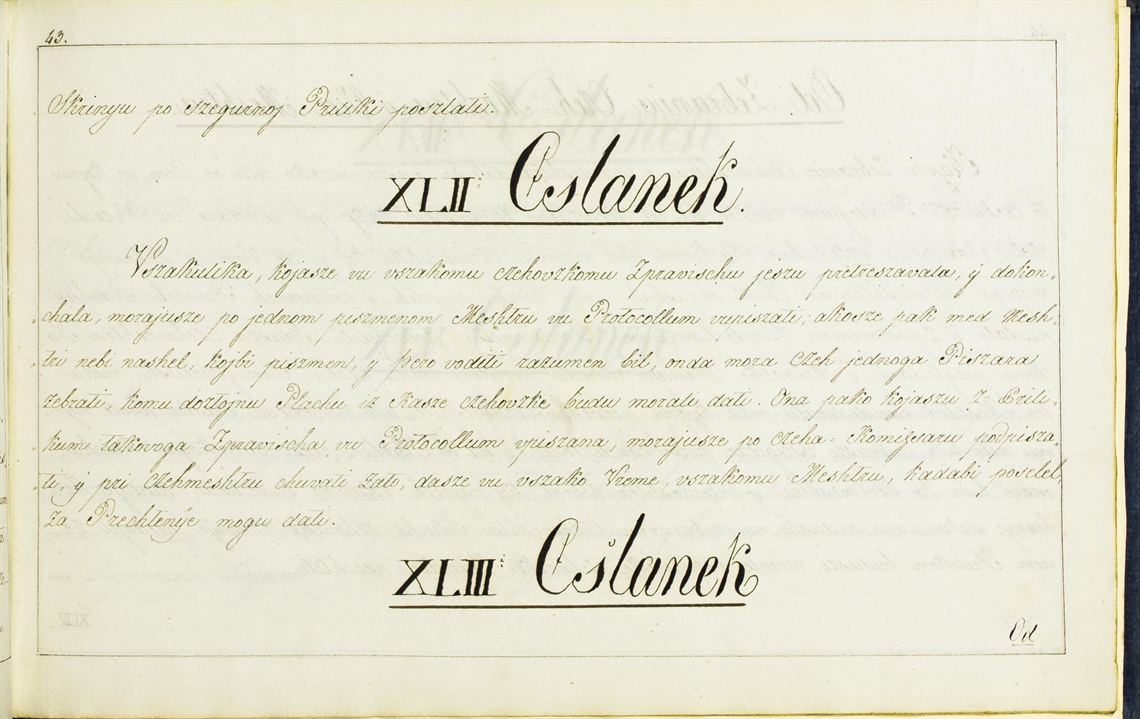 43.
Skrinyu po szegurnoj Priliki poszlati.
XLII: Cslanek.
Vszakulika, kojasze vu vszakomu czehovzkomu Zpravischu jeszu pretreszavala, y dokon-
chala, morajusze po jednom piszmenom Meshtru vu Protocollum vupiszati; akosze pak med Mesh-
tri nebi nashel, kojbi piszmen, y pero voditi razumen bil, onda mora Czeh jednoga Piszara
zebrati, komu doztojnu Plachu iz Kasze czehovzke budu morali dati. Ona pako kojaszu z-Prili-
kum takovoga Zpravischa vu Protocollum vpiszana, morajusze po Czeha-Komiszaru podpisza-
ti, y pri Czehmeshtru chuvati zato, dasze vu vszako Vreme, vszakomu Meshtru, kadabi poselel,
za Prechtenye mogu dati.
XLIII: Cslanek
Od